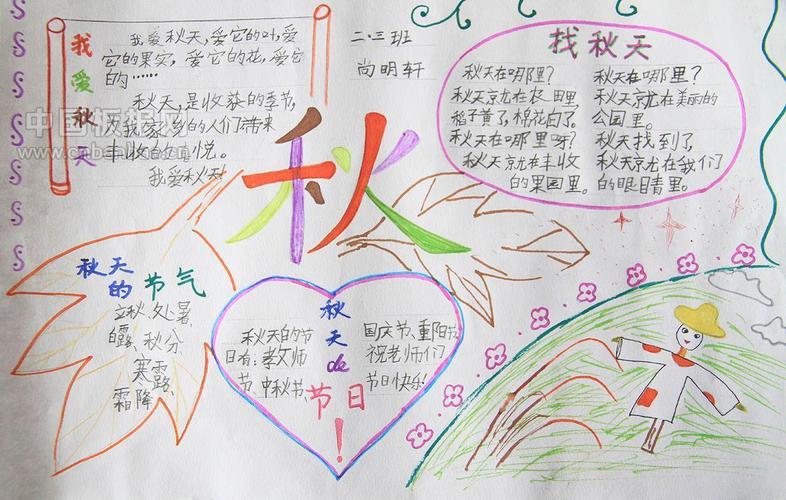 我爱秋天
我爱秋天,爱它的叶,爱
它的果实,爱它的花,爱它
的……
秋天,是收获的季节,
为我家乡的人们带来
丰收的喜悦。
我爱秋天!
二.三班
尚明轩
秋
找秋天
秋天在哪里?
秋天就在农田里,
稻子黄了,棉花白了。
秋天在哪里呀?
秋天就在丰收
的果园里。
秋天在哪里?
秋天就在美丽的
公园里。
秋天找到了,
秋天就在我们
的眼睛里。
秋天
的节气
立秋、处暑、
白露、秋分、
寒露、
霜降
秋天de
节日!
秋天的节
日有:教师
节、中秋节、
国庆节、重阳节
祝老师们
节日快乐!
中国板报网